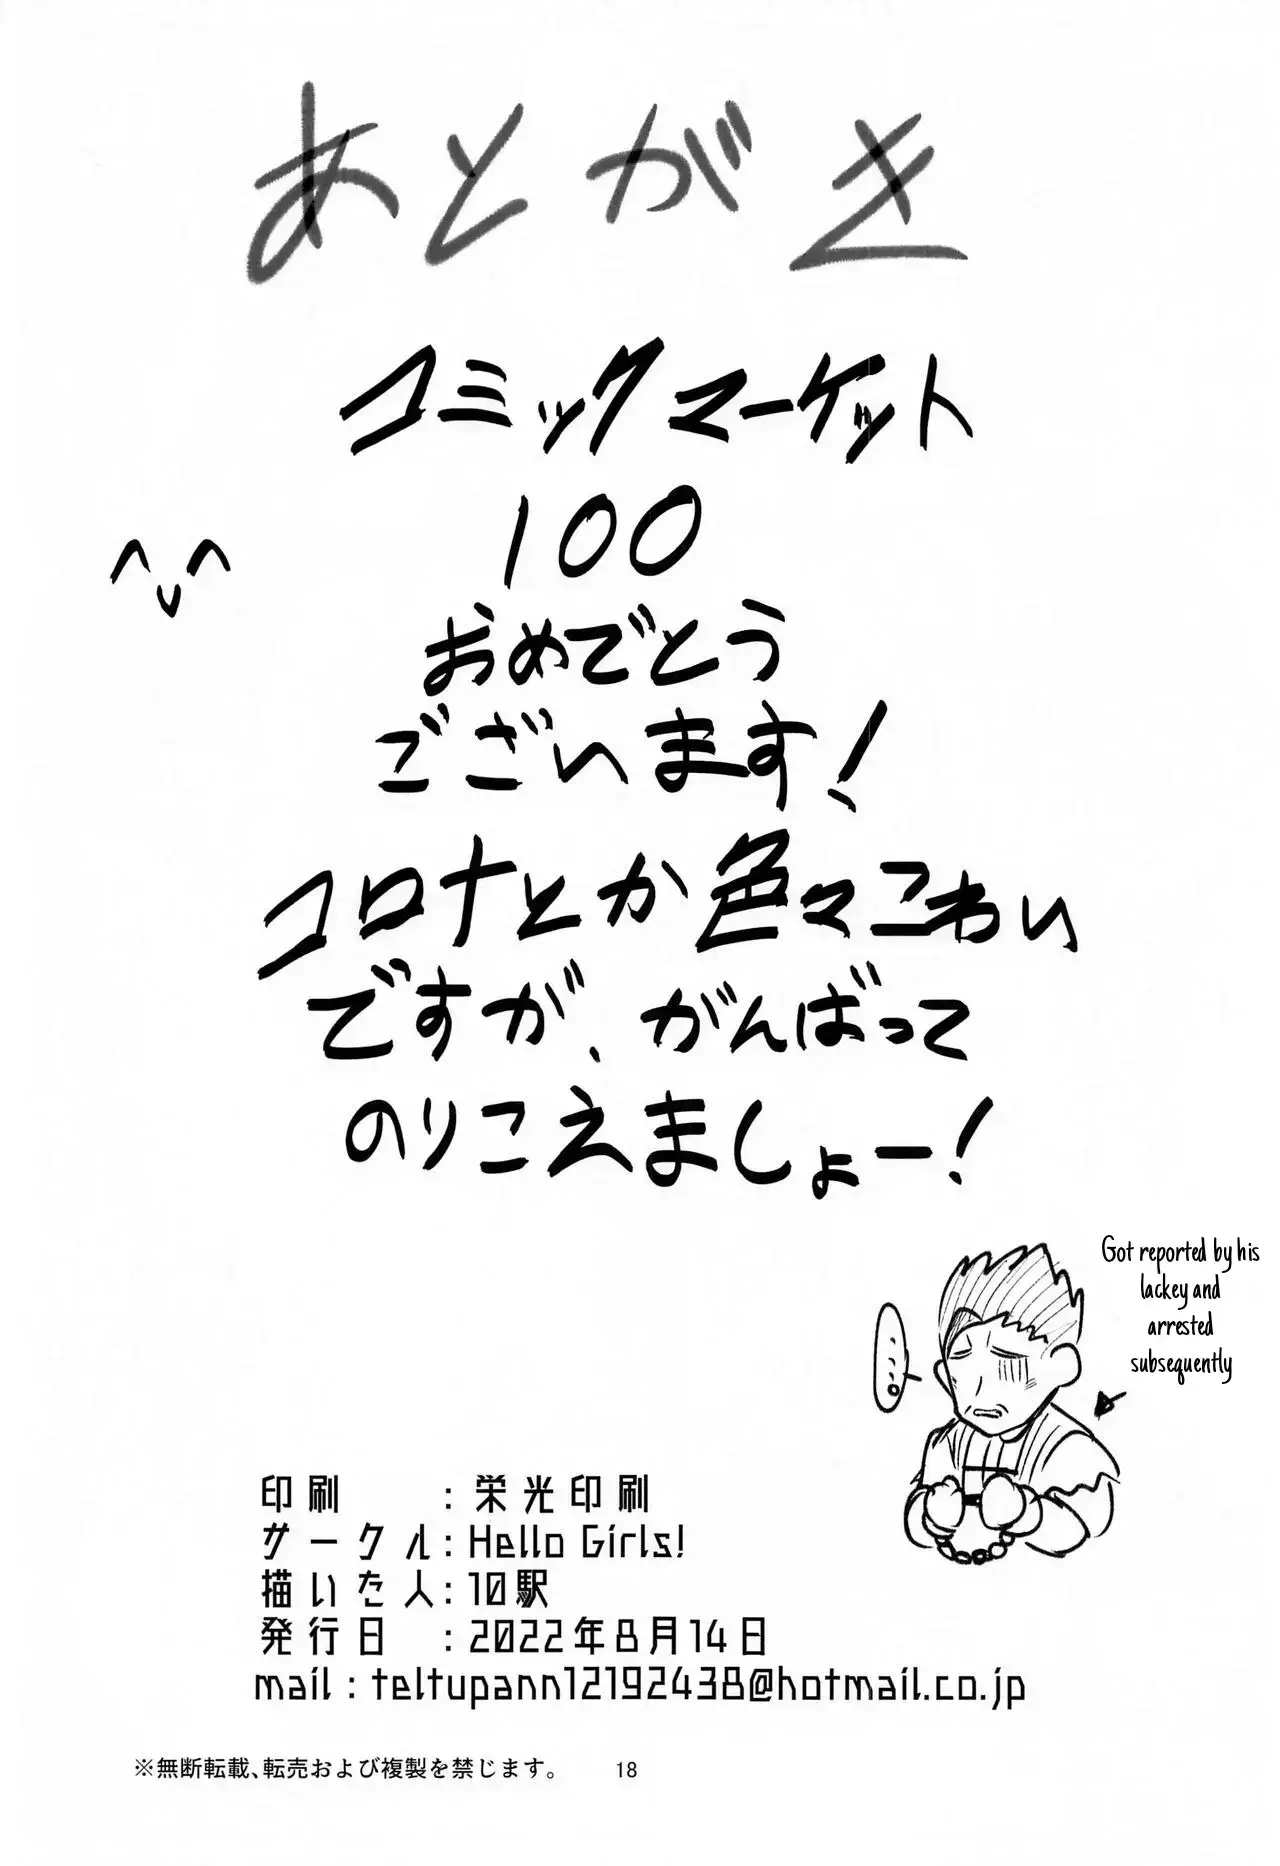 あとがき
コミックマーケット
100
おめでとう
ございます!
コロナとか色々こわい
ですが、がんばって
のりこえましょー!
Got reported by his
lackey and
arrested
subsequently
印刷 : 栄光印刷
サークル: Hello Girls!
描いた人: 10駅
発行日 : 2022年8月14日
mail : teltupann12192438@hotmail.co.jp
※無断転載、転売および複製を禁じます。
18